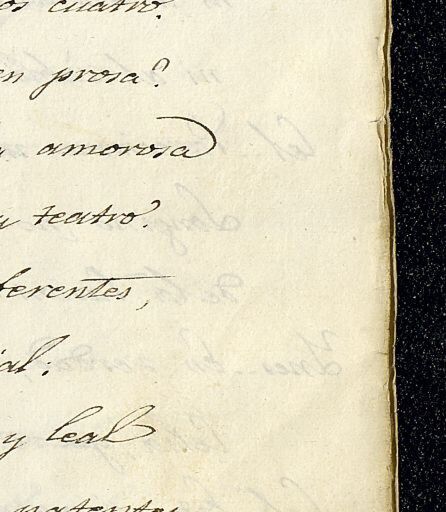 os cuatro.
en prosa?
amorosa
y teatro.
ferentes,
ial:
y leal
patentes